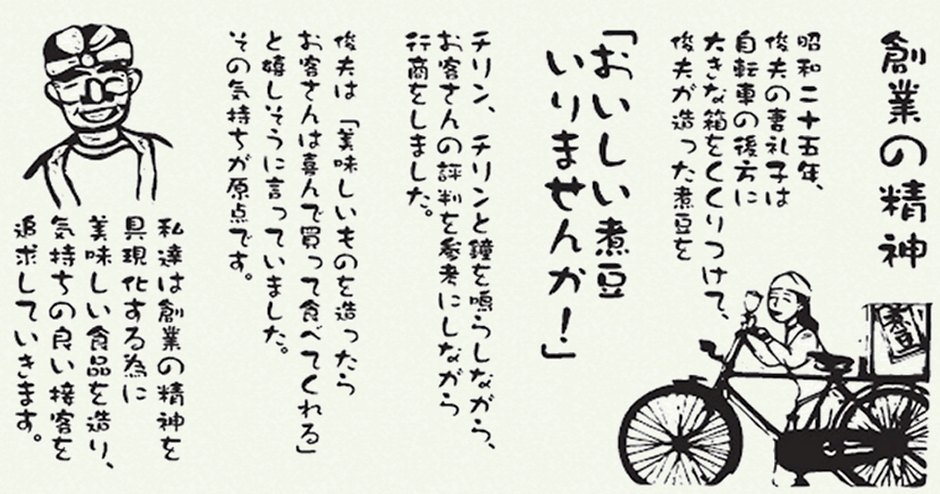 創業の精神
昭和二十五年、
俊夫の妻礼子は
自転車の後方に
大きな箱をくくりつけて、
俊夫が造った煮豆を
「おいしい煮豆
いりませんか!」
チリン、チリンと鐘を鳴らしながら、
お客さんの評判を参考にしながら
行商をしました。
俊夫は「美味しいものを造ったら
お客さんは喜んで買って食べてくれる」
と嬉しそうに言っていました。
その気持ちが原点です。
私達は創業の精神を
具現化する為に
美味しい食品を造り、
気持ちの良い接客を
追求していきます。
煮豆